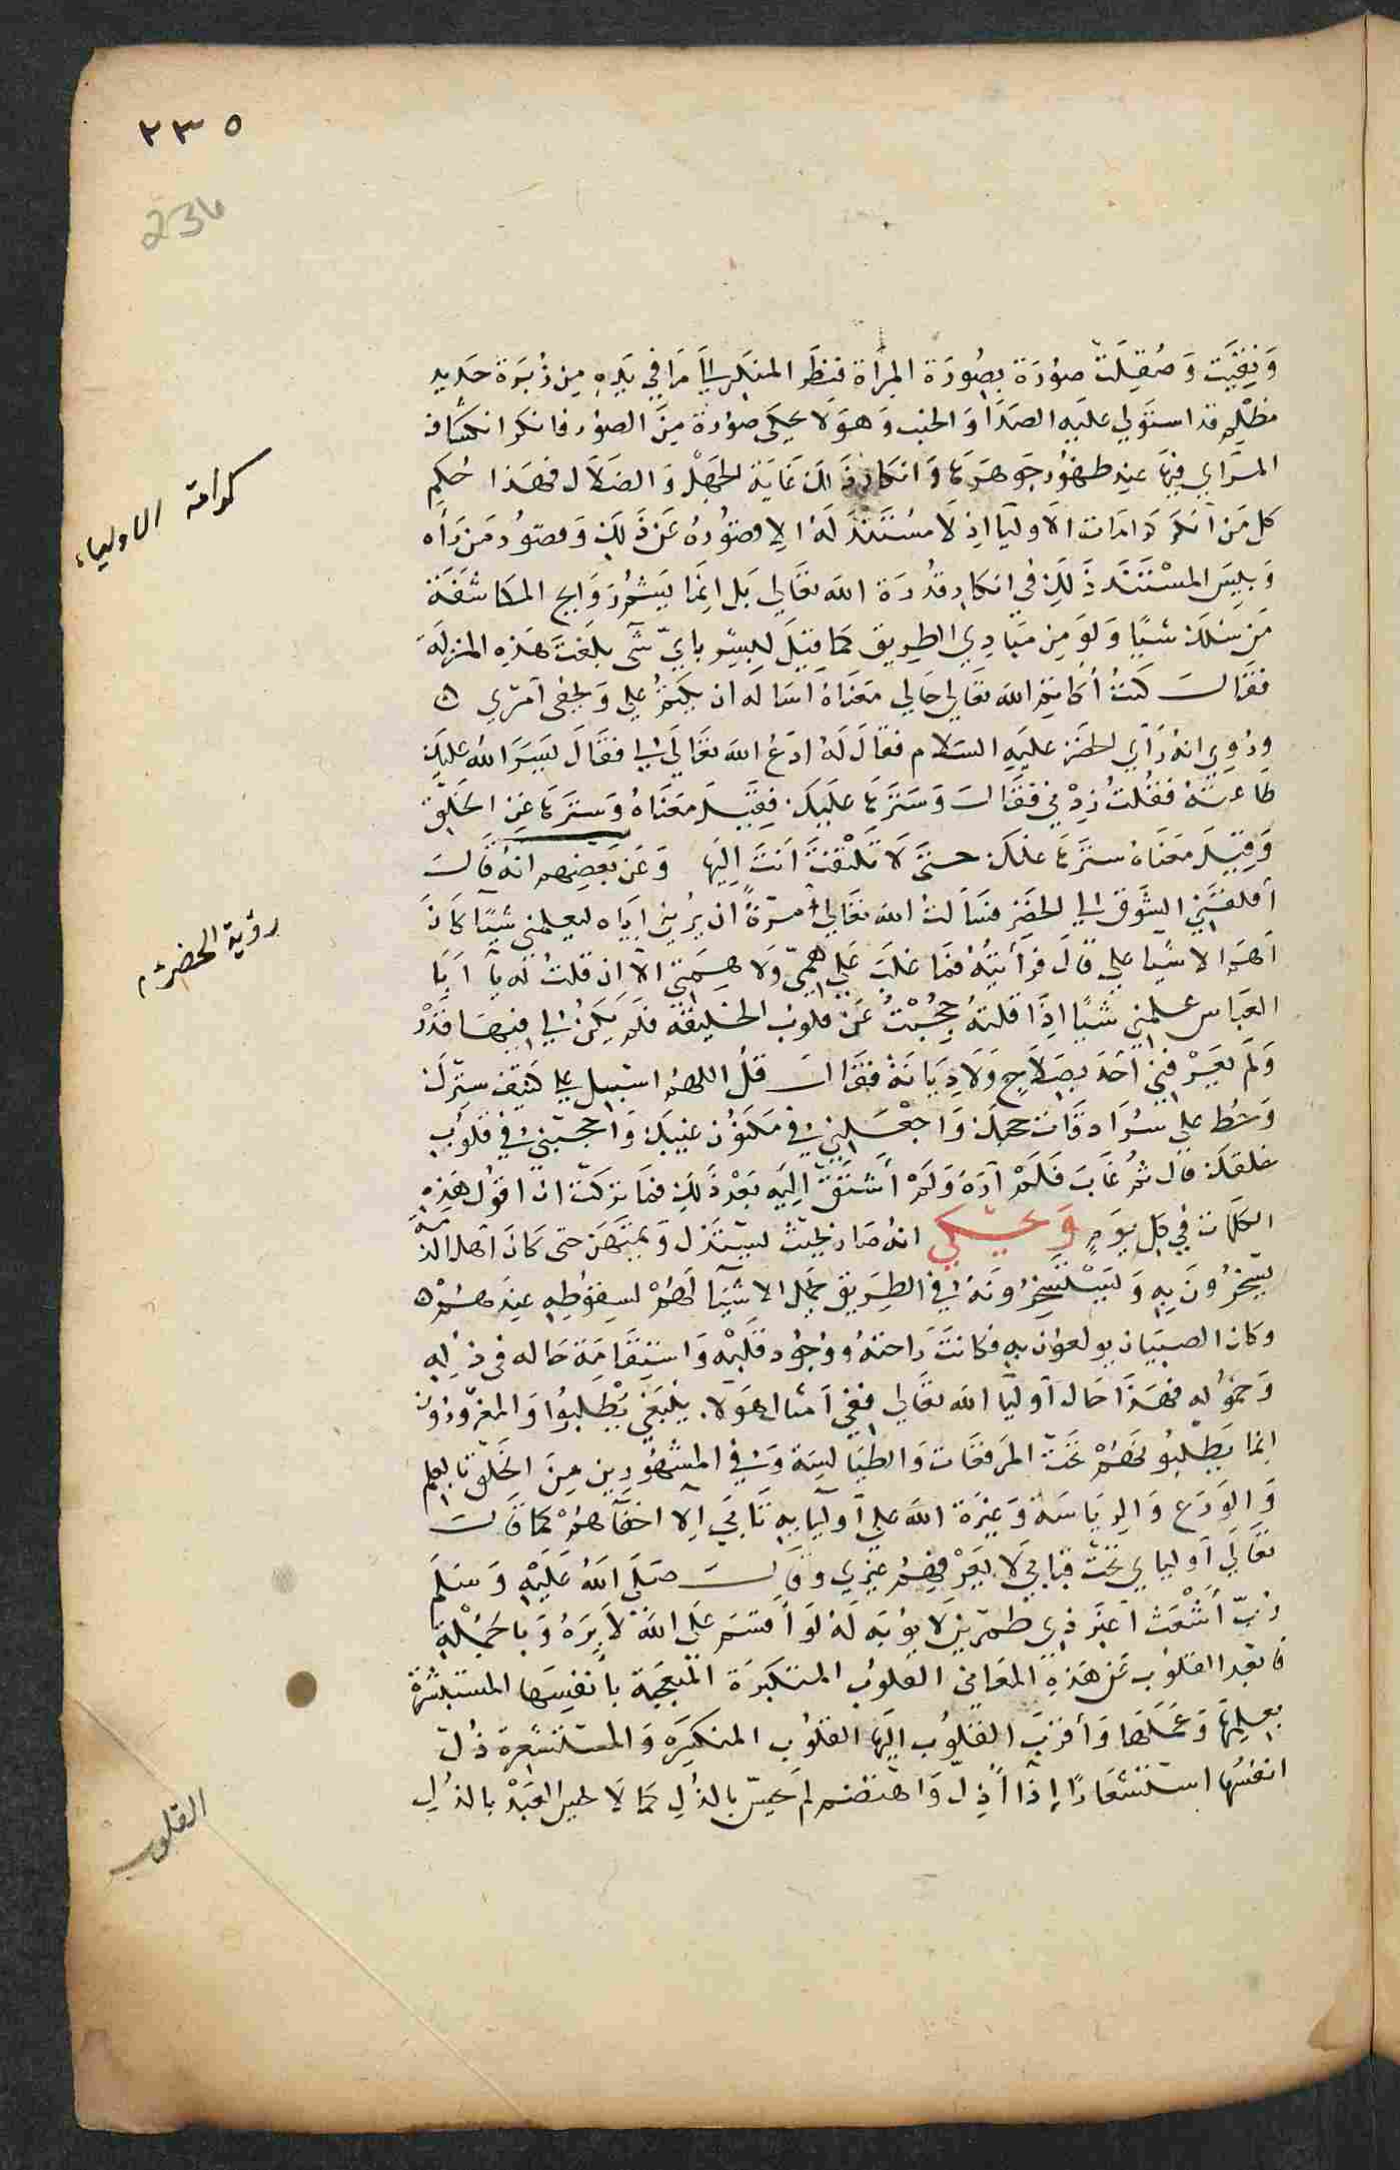 ٢٣٥
236
وَنقيَت وَصُقِلَت صورَة بصُورَة المِرآة فنظَر المنكِر الي مَا في يَدِه مِن زُبرَة حَدِيد
مظلِم قد استَولي عليه الصَدَأ وَالخبث وَهوَ لا يحكي صوُرَة مِنَ الصوُر فانكر انكشاف
المرَاي فِيهَا عِند ظهوُر جَوهَرهَا وَانكار ذَلك غايَة الجَهْل وَالضلال فهَذا حُكم
كل مَن انكر كرامَات الاوليَا اذ لَا مُستَند لَهُ الا قصوُرهُ عَن ذَلك وَقصوُر مَن رَأه
وَبِيسَ المسْتَنَد ذَلك في انكار قدُرَة الله تعَالي بَل انمَا يَشمُ رَوَايح المكاشَفَة
مَن سَلك شيًا وَلوَ مِن مبَادي الطريق كمَا قيلَ لبِشرٍ بايّ شَى بلَغتَ هَذِه المنزلَة
فقَالَ كنتُ اكاتِم الله تعَالي حَالي مَعنَاهُ اسَالهُ ان يكتمُ علي وَيخفى امري ه
ورُوِي انهُ رَاي الخضر عليَهِ السَلام فقالَ لهُ ادعُ الله تعَالَي لي فقَالَ يَسَرَ اللهُ عليك
طَاعتَهُ فقُلتُ زِدْني فقَالَ وَسَترَهَا عليكَ فقِيلَ معنَاهُ وَسَترَهَا عَن الخلق
وَقِيلَ معنَاهُ سترَهَا عنكَ حتى لَا تَلْتفتَ انتَ اليهَا وَعَن بعَضِهم انهُ قالَ
اقلقَني الشوَق الي الخضر فسَالتُ الله تعَالي مَرَّةً ان يُرِيني ايَاه ليعلمني شيًا كانَ
اهَم الاشيَا علي قالَ فرَأيتُهُ فمَا غلبَ علي همّي وَلا هِمَتي الا ان قلتُ لهُ يَا ابَا
العَبَاس علمني شيًا اذَا قلتهُ حُجِبْتُ عَن قلوُب الخليقَة فلَم يكن لي فيهَا قدْر
وَلَم يعَرفني احَد بصَلاح وَلا ديَانَة فقالَ قل اللهم اسبل علي كثيف سِترك
وَحُط علي سُرَادقَات حجبك وَاجعَلني في مَكنوُن غيبك وَاحجبني في قلوُب
خلقك قال ثمُ غابَ فلَم اَرَهُ وَلَم اشتَق اليهِ بعَد ذَلك فمَا تركت ان اقوُل هَذِه
الكلمَات في كل يوَم وَيحكي انهُ صَار بحَيثُ يستَذَل وَيمتَهَن حتى كانَ اهل الذمَّة
يسخرُونَ بِه وَيَسْتَسخِرُونَهُ في الطريق يحمل الاشيَا لهُم لسقوُطِه عِندَهُم ه
وكان الصبيَان يولعوُن بِه فكانت رَاحتهُ ووُجوُد قلبهُ وَاستقامَة حَالهِ في ذُلِّهِ
وَخموُلهِ فهَذا حَال اوليَا الله تعَالي ففي امثال هوَلا ينبَغي يُطلبوُا وَالمغروُروُن
انما يَطلبُونهُم تحَت المرقعَات وَالطيَالِسَة وَفي المشهوُرين بينَ الخَلق بالعِلم
وَالوَرَع وَالريَاسَة وَغيرَة الله علي اوليَايهِ تَابَي الا اخفاهُم كمَا قالَ
تعَالَي اوليَاي تحَت قبَابي لَا يعَرفهُم غيري وقالَ صَلي اللهُ عَليهِ وَسَلم
رُبّ اشعَث اغبَر ذِي طمرَين لا يؤبَه لهُ لَو اقسَم علي الله لَابرَهُ وَبالجملَة
فابعَد القلوُب عَن هَذِه المعَاني القلوُب المتَكبرَة المعجَبَة بانفسهَا المستبشِرَة
بعِلمِهَا وَعَملهَا وَاقرَب القلوُب اليهَا القلوُب المنكسِرَة وَالمستشعِرَة ذُل
انفسُهَا استشعَارًا إذا اذِلَّ وَاهتضم لَم يحسّ بالذُل كمَا لا يحس العَبد بالذل
كرامة الاولياء
رؤية الخضر ع م
القلوب